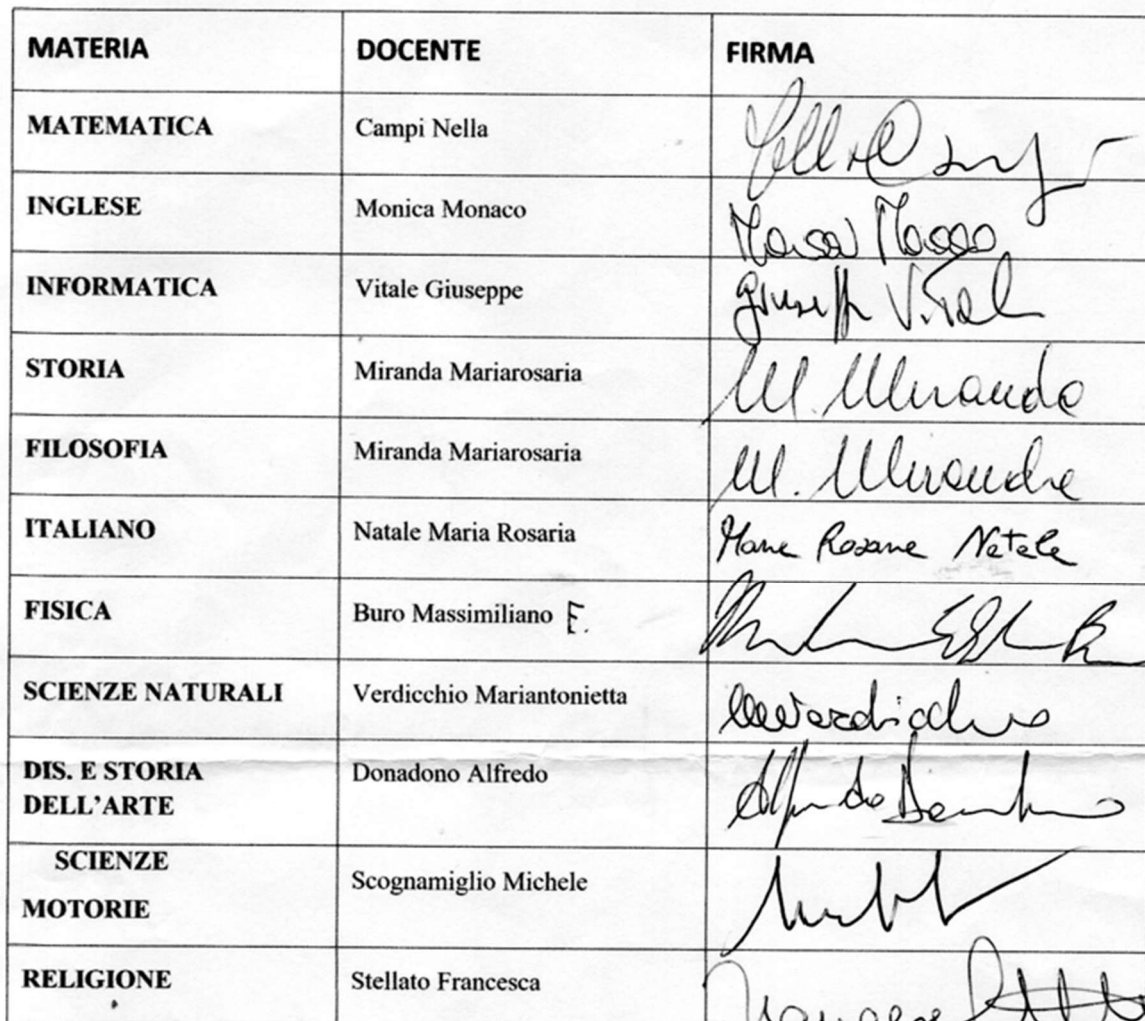 MATERIA DOCENTE FIRMA
MATEMATICA Campi Nella
INGLESE Monica Monaco
INFORMATICA Vitale Giuseppe Giuseppe Vitale
STORIA Miranda Mariarosaria M. Miranda
FILOSOFIA Miranda Mariarosaria M. Miranda
ITALIANO Natale Maria Rosaria Maria Rosaria Natale
FISICA Buro Massimiliano E.
SCIENZE NATURALI Verdicchio Mariantonietta
DIS. E STORIA Donadono Alfredo Alfredo
DELL’ARTE
SCIENZE
MOTORIE Scognamiglio Michele
RELIGIONE Stellato Francesca